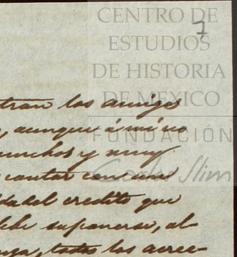 CENTRO DE
ESTUDIOS
DE HISTORIA
DE MÉXICO
FUNDACIÓN
Carlos Slim
7
tran los amigos
, aunque á mi no
muchos y muy
contar con una
del credito que
suponerse, al-
todos los acree-